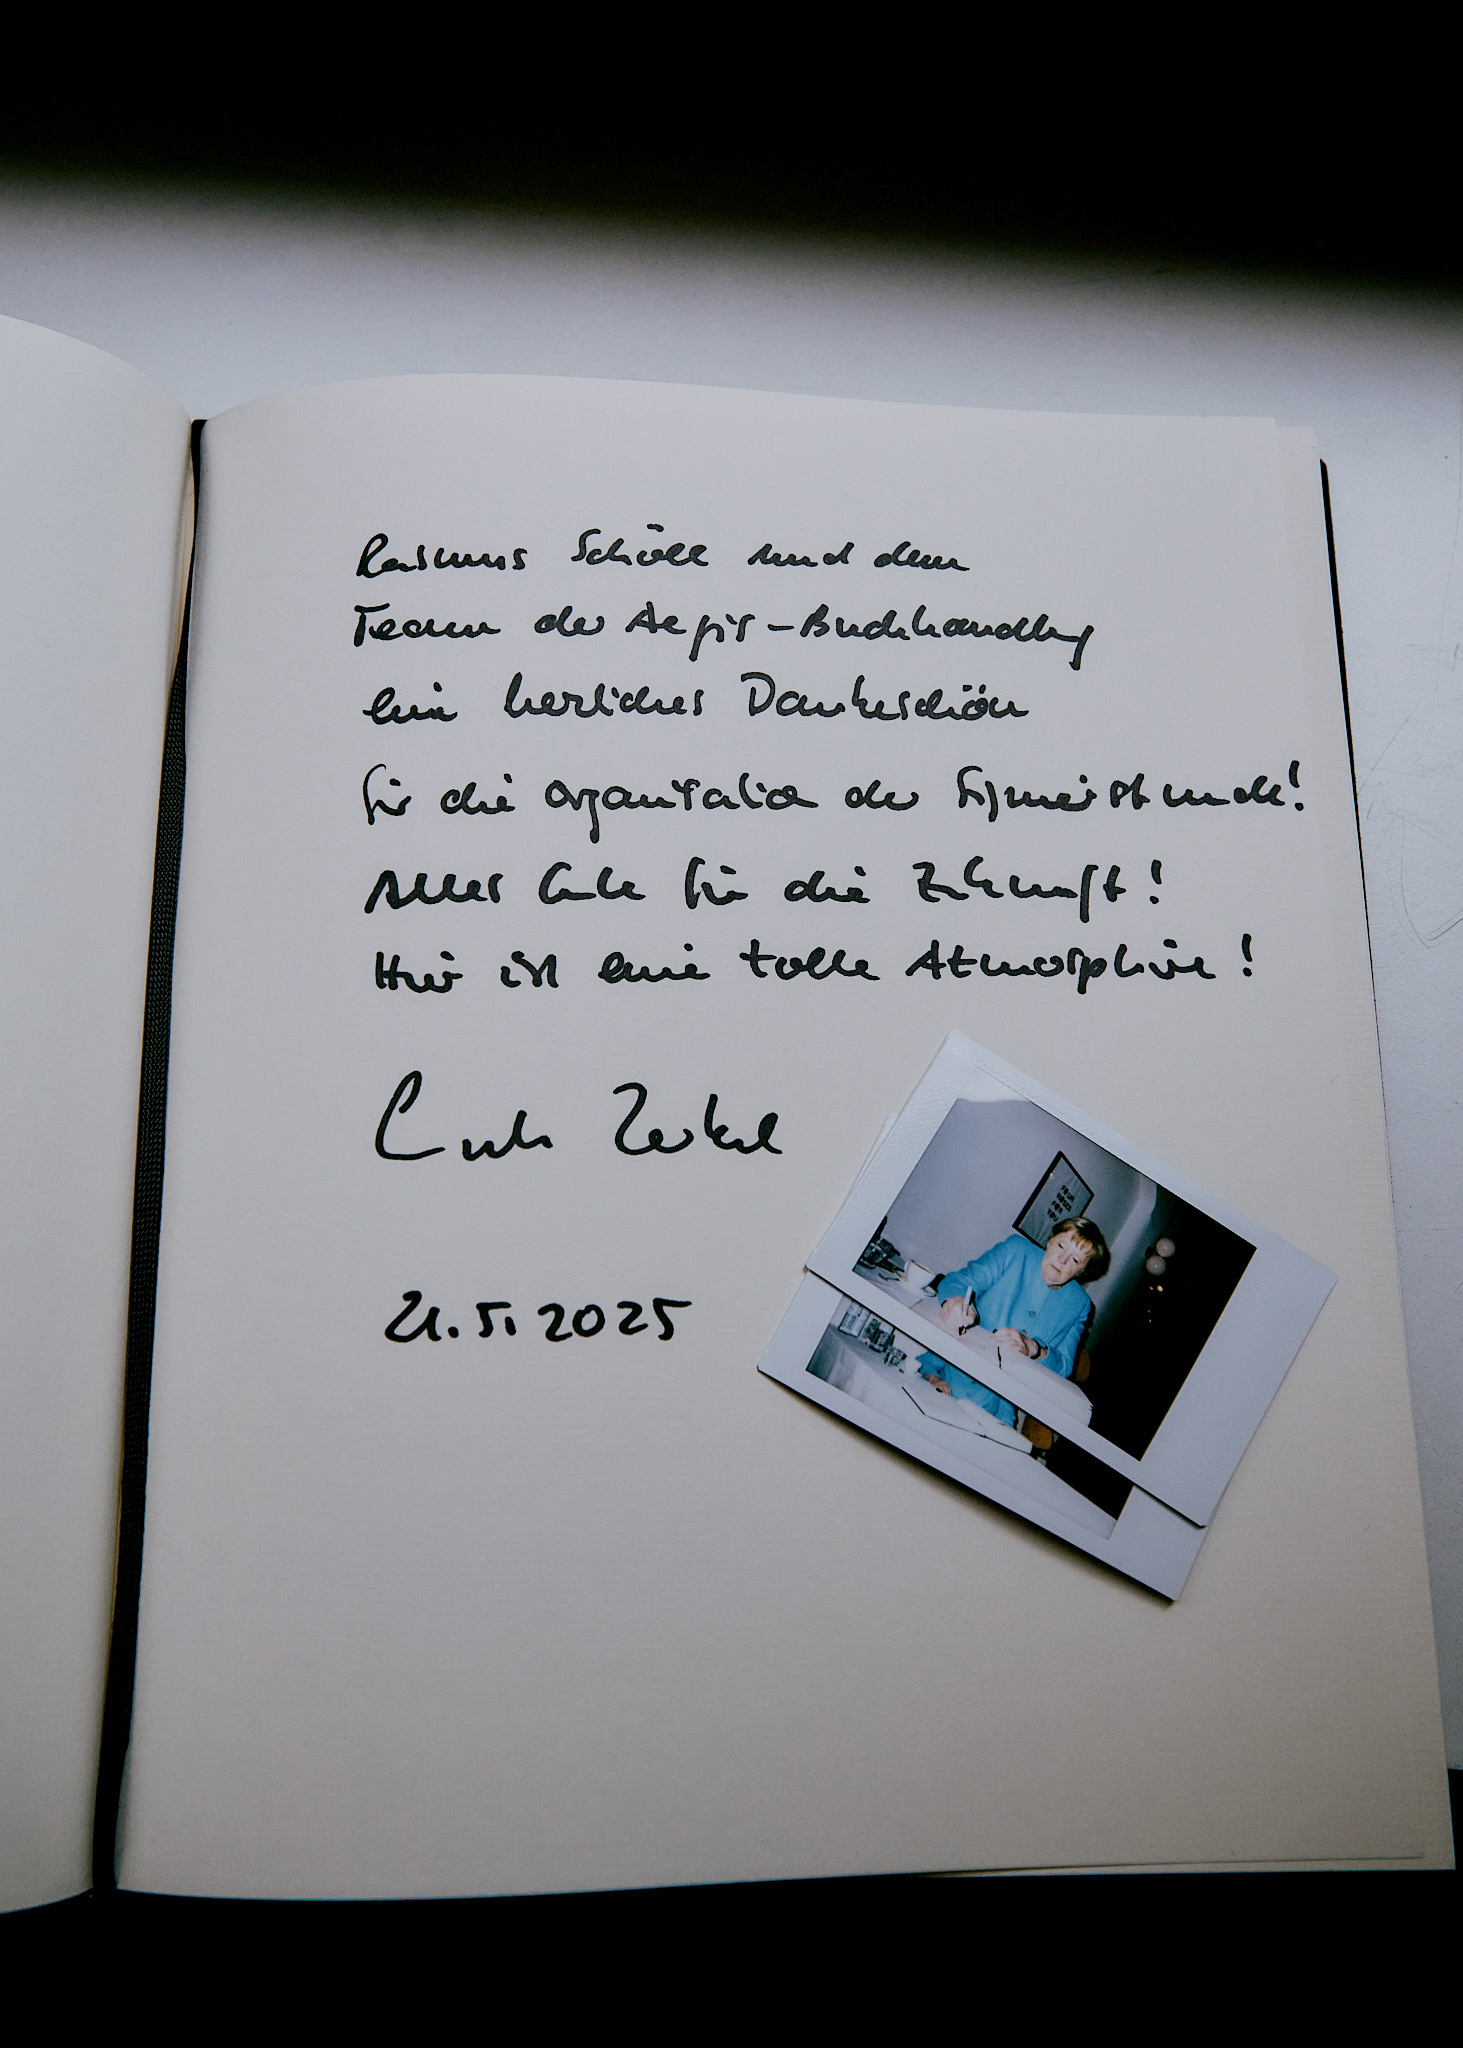 Rasmus Schöll und dem
Team der Aegis-Buchhandlung
ein herzliches Dankeschön
für die Organisation der Signierstunde!
Alles Gute für die Zukunft!
Hier ist eine tolle Atmosphäre!
21.5.2025